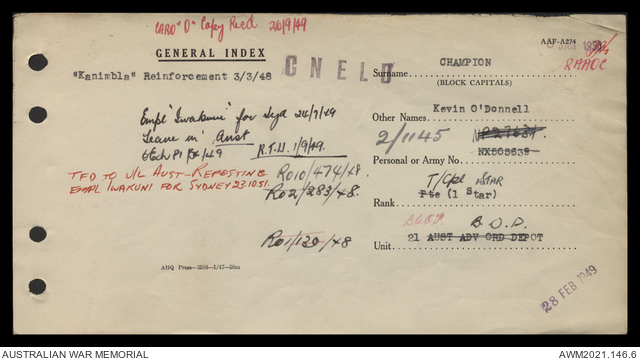 CARD "D" Copy Recd 20/9/49
AAF-A274
GENERAL INDEX
RAAOC
"Kanimbla" Reinforcement 3/3/48
Surname CHAMPION
(BLOCK CAPITALS)
Empl "Iwakuni" for Syd 24/7/49
Leave in Aust
R.T.U. 1/9/49.
Other Names Kevin O'Donnell
2/1145
NX505638
Personal or Army No.
TFD TO U/L AUST-REPOSTING
EMPL IWAKUNI FOR SYDNEY 23.10.51.
RO10/474/48
RO2/283/48
RO1/139/48
T/Cpl STAR
Rank Pte (1 Star)
B.O.D.
Unit 21 AUST ADV ORD DEPOT
AHQ Press—3598—1/47—50m
28 FEB 1949
AUSTRALIAN WAR MEMORIAL
AWM2021.146.6